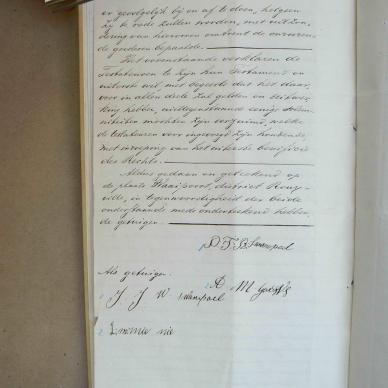 er gevolgelijk bij en af te doen, hetgeen
zij te rade zullen worden, met uitzon-
dering van hiervoren omtrent de onroeren-
de goederen bepaalde.
Het vorenstaande verklaren de
Testateuren te zijn hun Testament en
uiterste wil met begeerte dat het daar-
voor in allen deele zal gelden en
king hebben, niettegenstaande eenige
mochten zijn verzuimd, welke
de testateuren voor ingevoegd zijn houdende,
met inroeping van het uiterste beneficie
des Rechts.
Aldus gedaan en geteekend op
de plaats district Roux-
ville, in tegenwoordigheid der beide
onderstaande mede onderteekend hebben-
de getuigen.
Als getuigen.
1 J J W
A M
2